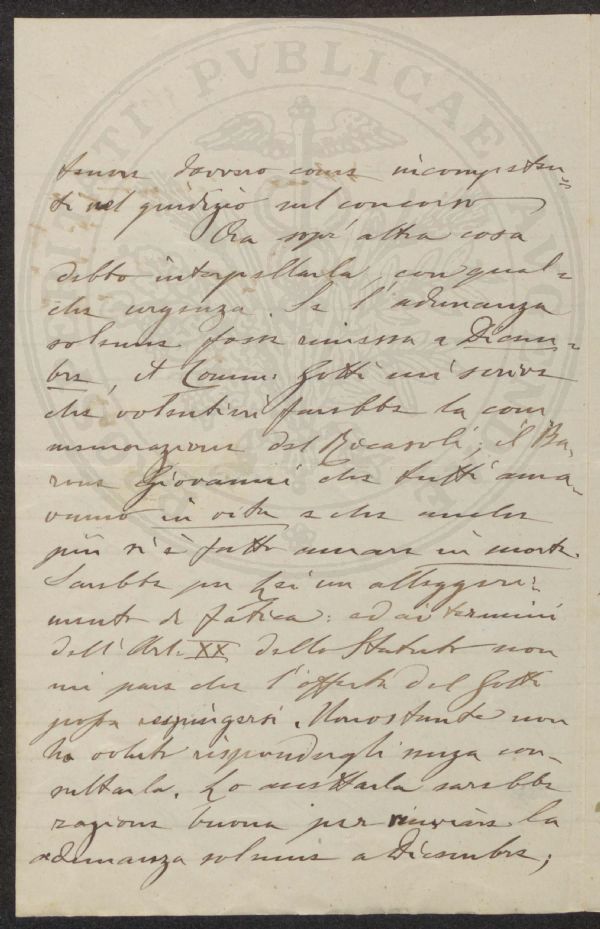 tenere davvero come incompeten=
ti nel giudizio sul concorso
Ora sopr' altra cosa
debbo interpellarla, con qual=
che urgenza. Se l'adunanza
solenne fosse rimessa a Dicem=
bre, il Comm. Gotti mi scrive
che volentieri farebbe la com
memorazione del Ricasoli; il Ba,
rone Giovanni che tutti ama,
vamo in vita e che anche
più si è fatto amare in morte.
Sarebbe per Lei un alleggeri=
mento di fatica: ed ai termini
dell' Art. XX dello Statuto non
mi pare che l'offerta del Gotti
possa respingersi. Nonostante non
ho voluto rispondergli senza con=
sultarla. Lo accettarla sarebbe
ragione buona per rinviare la
adunanza solenne a Dicembre;
PVBLICAE